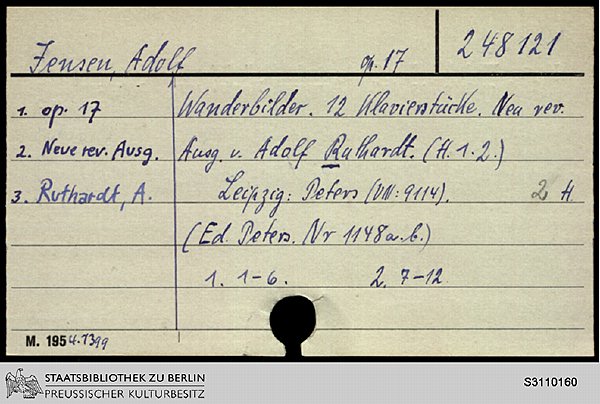 Jensen, Adolf op. 17 248121
1. op. 17 Wanderbilder. 12 Klavierstücke. Neu rev.
2. Neue rev. Ausg. Ausg. v. Adolf Ruthardt. (H. 1. 2.)
3. Ruthardt, A. Leipzig: Peters (VN: 9114). 2 H.
(Ed. Peters. Nr 1148a.b.)
1. 1-6. 2. 7-12
M. 1954.1399
STAATSBIBLIOTHEK ZU BERLIN
PREUSSISCHER KULTURBESITZ
S3110160